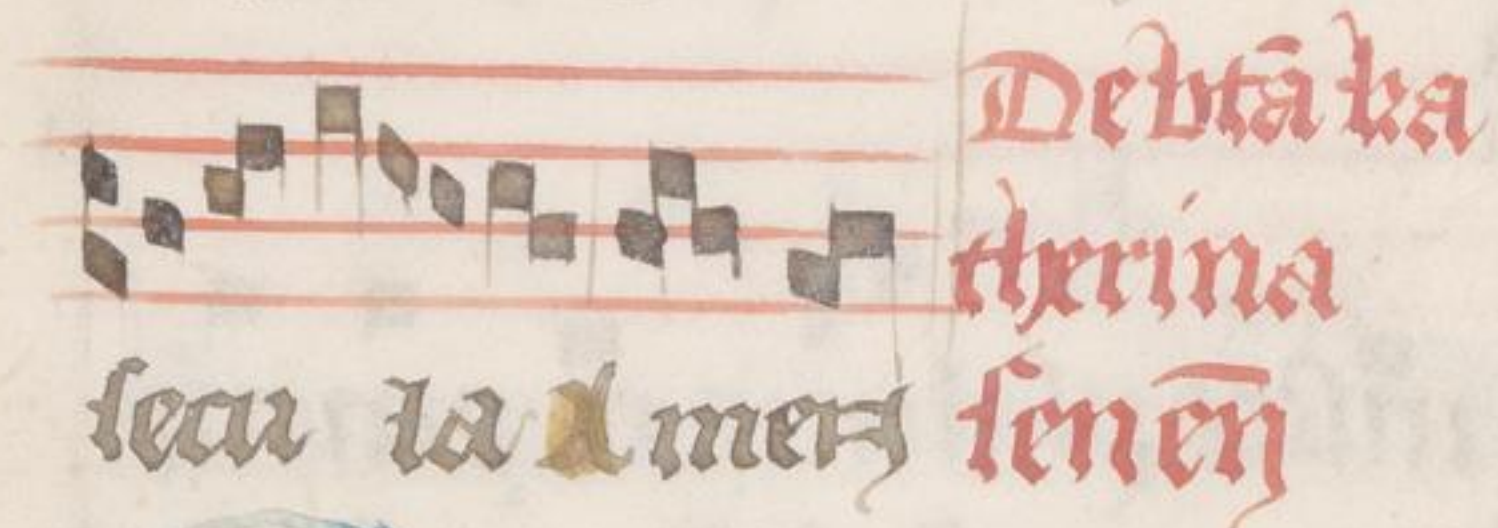 De btā ka
therina
secu la Amen
senen̄